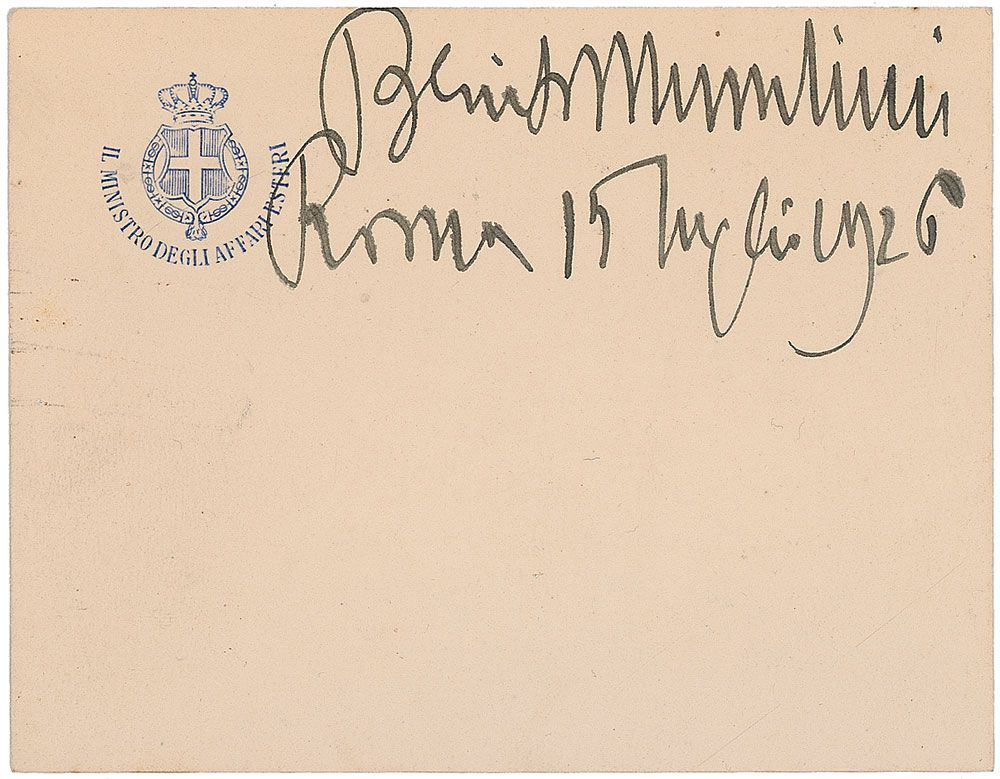 IL MINISTRO DEGLI AFFARI ESTERI
Benito Mussolini
Roma 15 luglio 1926